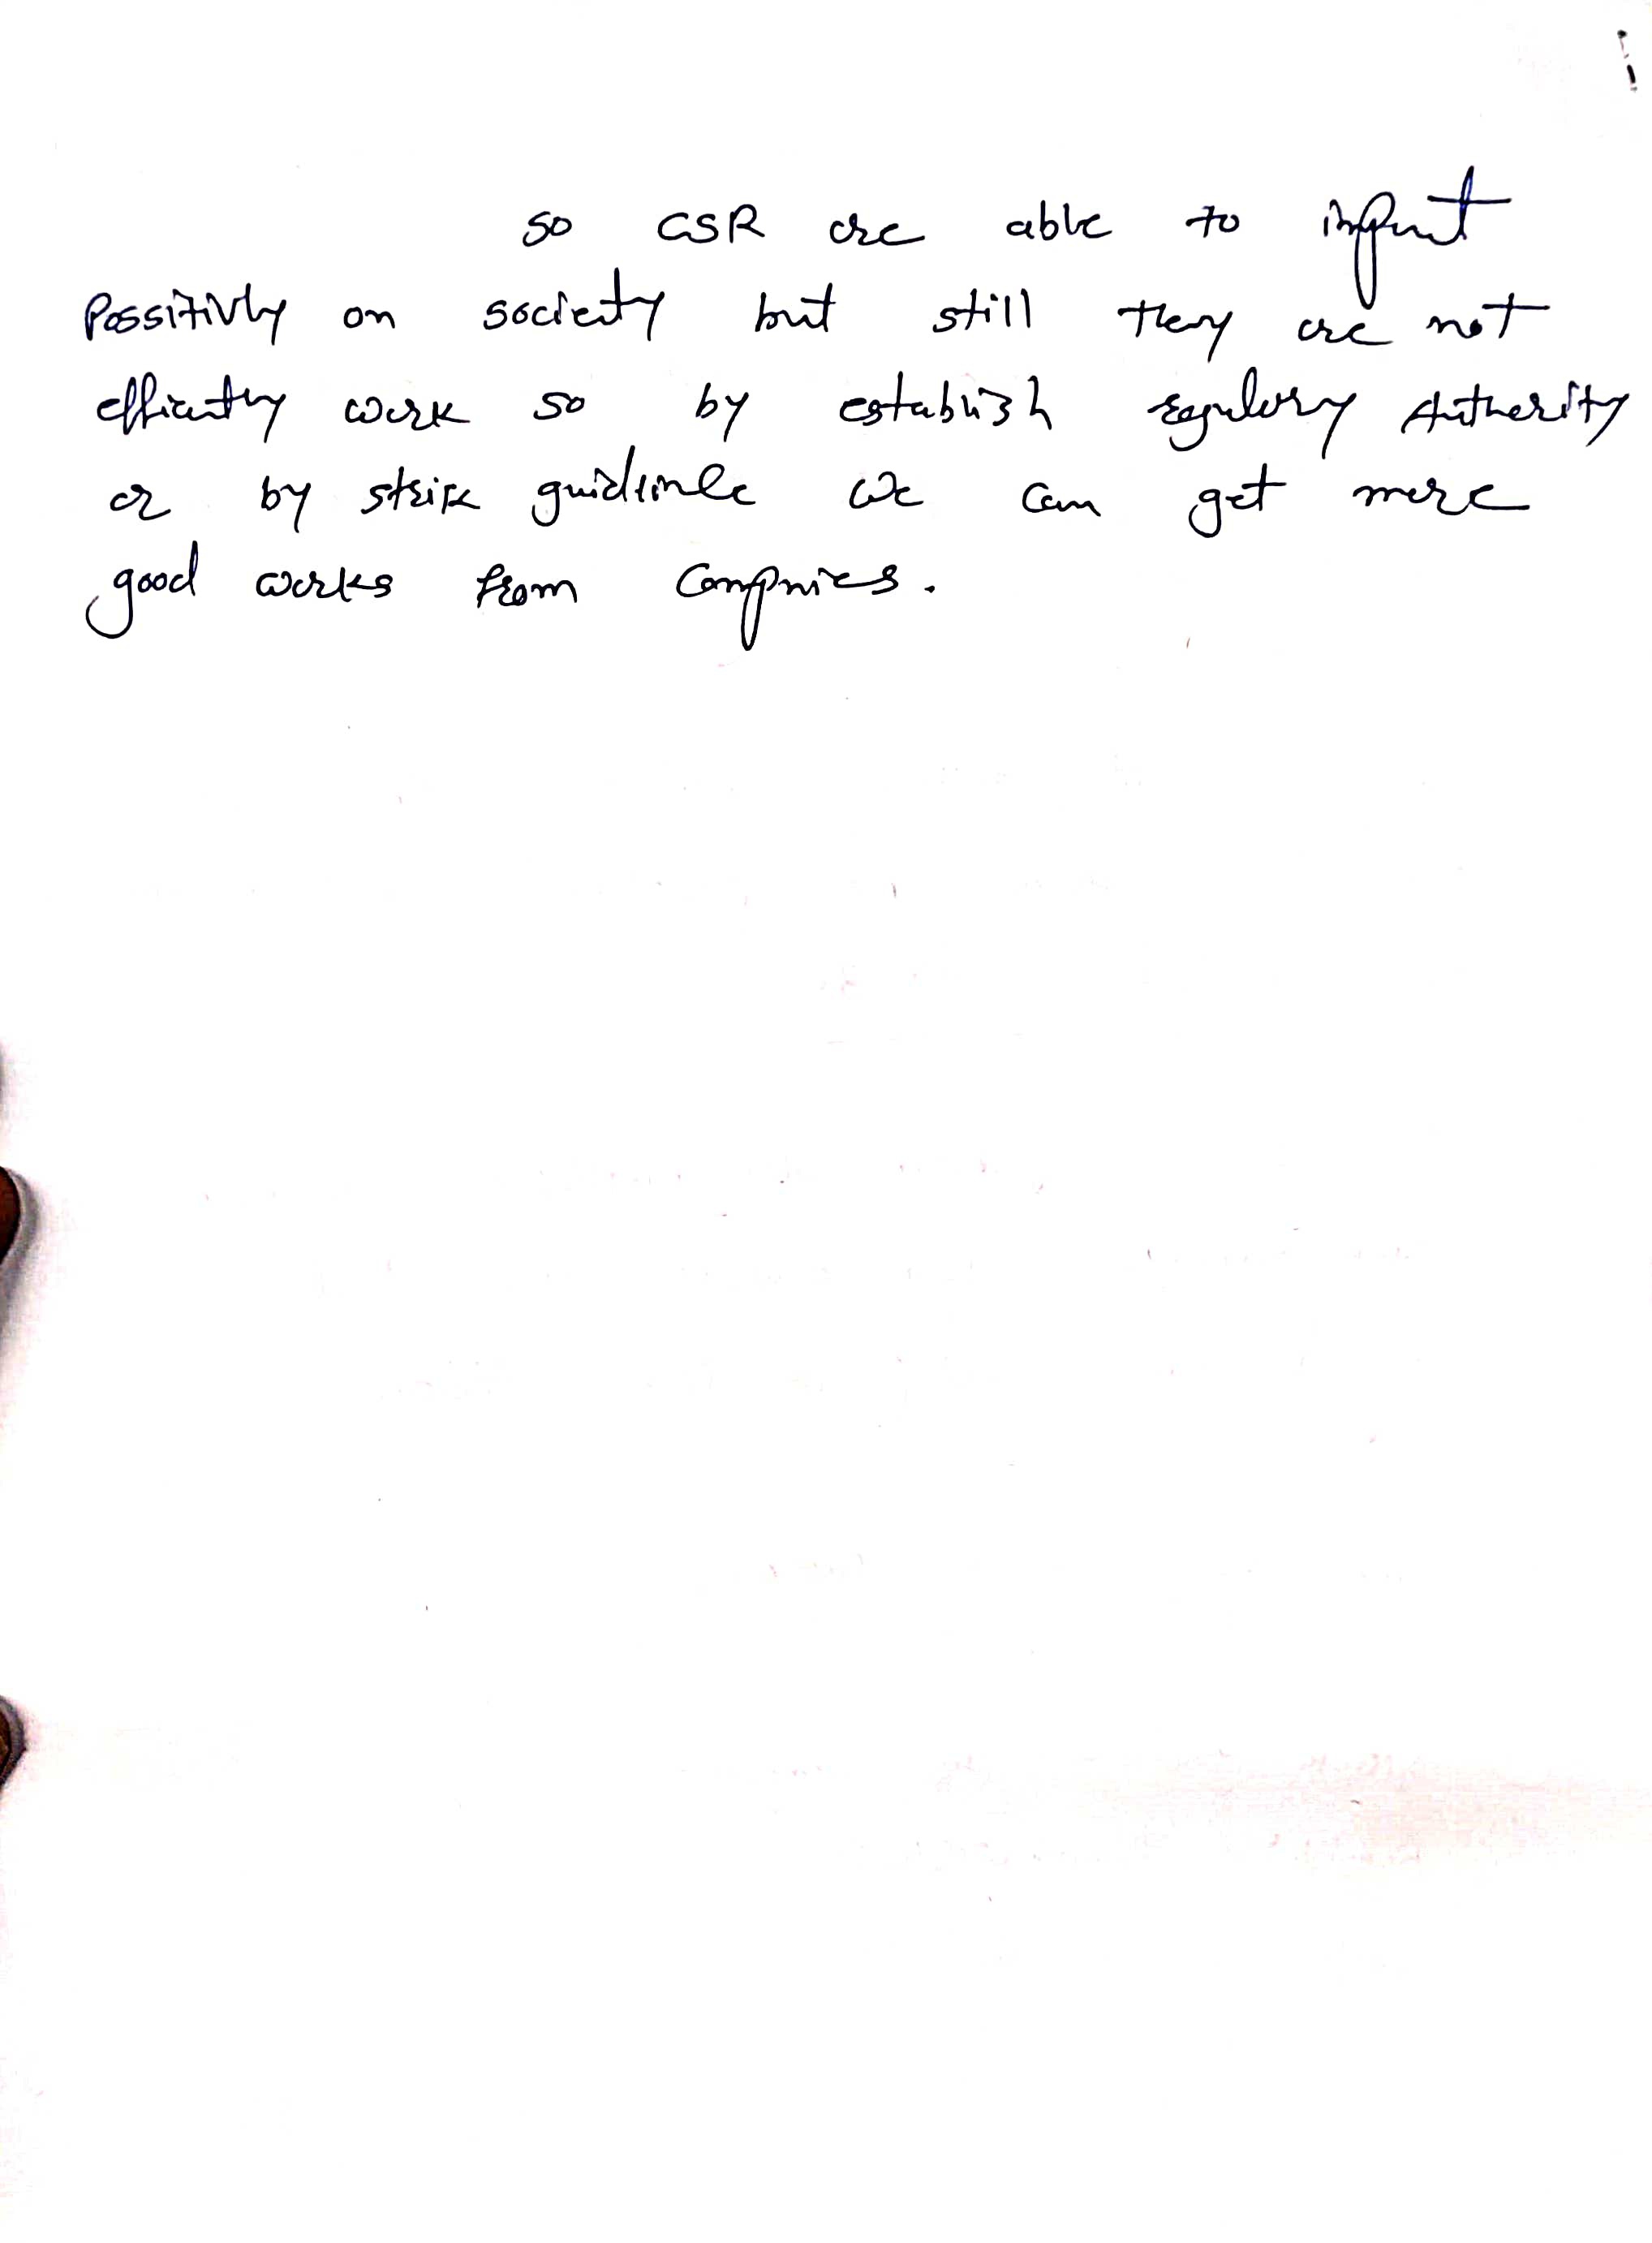 so CSR are able to
Possitivly on socienty but still they are not
efficiently work so by establish regulory Authority
or by guidline we can get more
good works from Compnies.